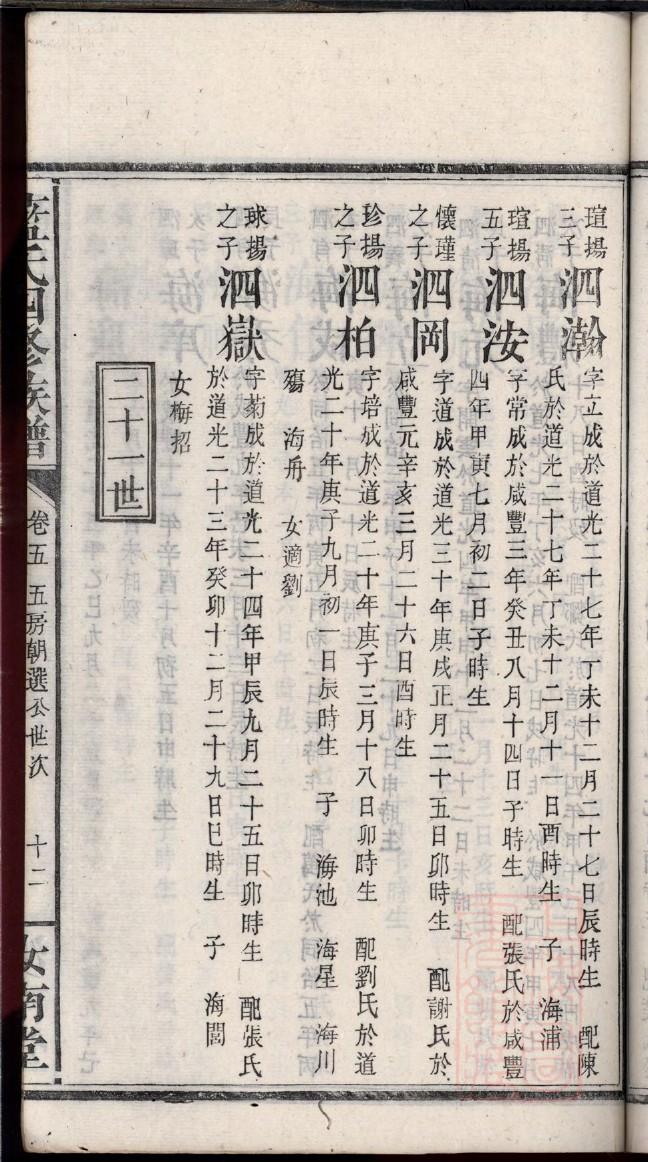 瑄揚
三子
泗瀚
字立成於道光二十七年丁未十二月二十七日辰時生 配陳
氏於道光二十七年丁未十二月十一日酉時生 子 海浦
瑄揚
五子
泗汝
字常成於咸豐三年癸丑八月十四日子時生 配張氏於咸豐
四年甲寅七月初二日子時生
懷瑾
之子
泗岡
字道成於道光三十年庚戌正月二十五日卯時生 配謝氏於
咸豐元辛亥三月二十六日酉時生
珍揚
之子
泗柏
字培成於道光二十年庚子三月十八日卯時生 配劉氏於道
光二十年庚子九月初一日辰時生 子 海池 海星 海川
殤 海舟 女適劉
球揚
之子
泗嶽
字菊成於道光二十四年甲辰九月二十五日卯時生 配張氏
於道光二十三年癸卯十二月二十九日巳時生 子 海閭
女梅招
二十一世
氏四修族譜
卷五 五房朝選公世次 十二
汝南堂